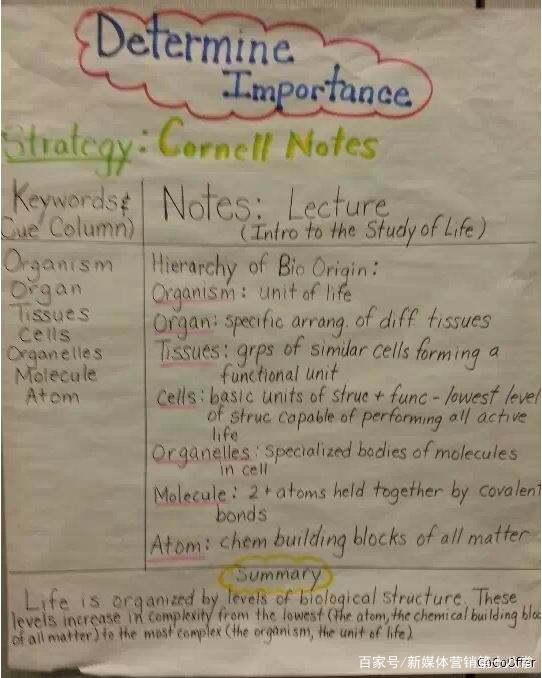 Determine
Importance
Strategy: Cornell Notes
Keywords &
Cue Column)
Notes: Lecture
(Intro to the Study of Life)
Organism
Organ
Tissues
Cells
Organelles
Molecule
Atom
Hierarchy of Bio Origin:
Organism: unit of life
Organ: specific arrang. of diff tissues
Tissues: grps of similar cells forming a
functional unit
Cells: basic units of struc + func - lowest level
of struc capable of performing all active
life
Organelles: specialized bodies of molecules
in cell
Molecule: 2+ atoms held together by covalent
bonds
Atom: chem building blocks of all matter
Summary
Life is organized by levels of biological structure. These
levels increase in complexity from the lowest (the atom, the chemical building bloc
of all matter) to the most complex (the organism, the unit of life)
百家号/新媒体营销